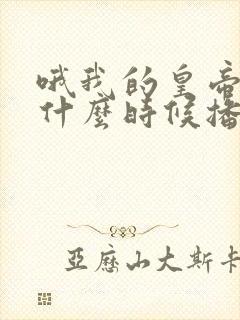 哦我的皇帝
什麼時候播
亞歷山大斯卡